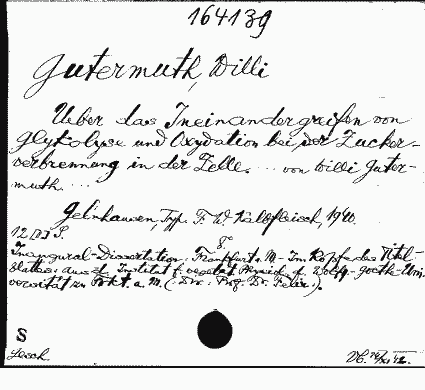 164139
Gutermuth, Willi
Ueber das Ineinandergreifen von
Glykolyse und Oxydation bei der Zucker-
verbrennung in der Zelle. ... von Willi Guter-
muth. ...
Gelnhausen, Typ. F. W. Kalbfleisch, 1940.
12 S.
Inaugural-Dissertation, Frankfurt a. M. Im Kopf des Titel-
blattes: aus d. Institut f. vegetat. Physiol. d. Wolfg.-Goethe-Uni-
versität zu Frkft. a. M. (: Dir. Prof. Dr. Felix:).
S